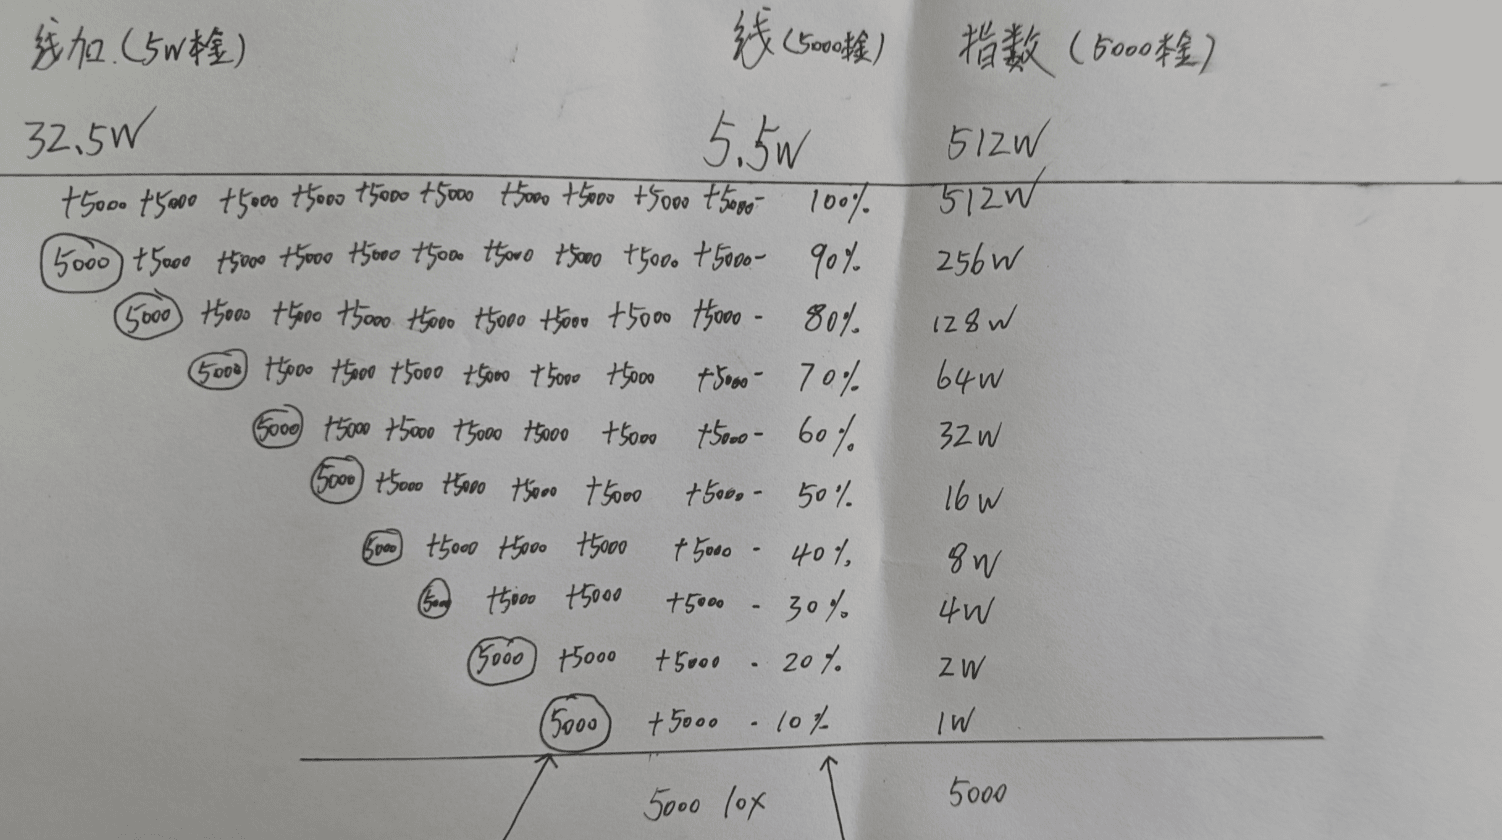 线加.(5W本金) 线(5000本金) 指数(5000本金)
32.5W 5.5W 512W
+5000 +5000 +5000 +5000 +5000 +5000 +5000 +5000 +5000 +5000- 100% 512W
5000 +5000 +5000 +5000 +5000 +5000 +5000 +5000 +5000 +5000- 90% 256W
5000 +5000 +5000 +5000 +5000 +5000 +5000 +5000 +5000 - 80% 128W
5000 +5000 +5000 +5000 +5000 +5000 +5000 +5000- 70% 64W
5000 +5000 +5000 +5000 +5000 +5000 +5000- 60% 32W
5000 +5000 +5000 +5000 +5000 +5000- 50% 16W
5000 +5000 +5000 +5000 +5000 - 40% 8W
5000 +5000 +5000 +5000 - 30% 4W
5000 +5000 +5000 - 20% 2W
5000 +5000 - 10% 1W
5000 10x 5000